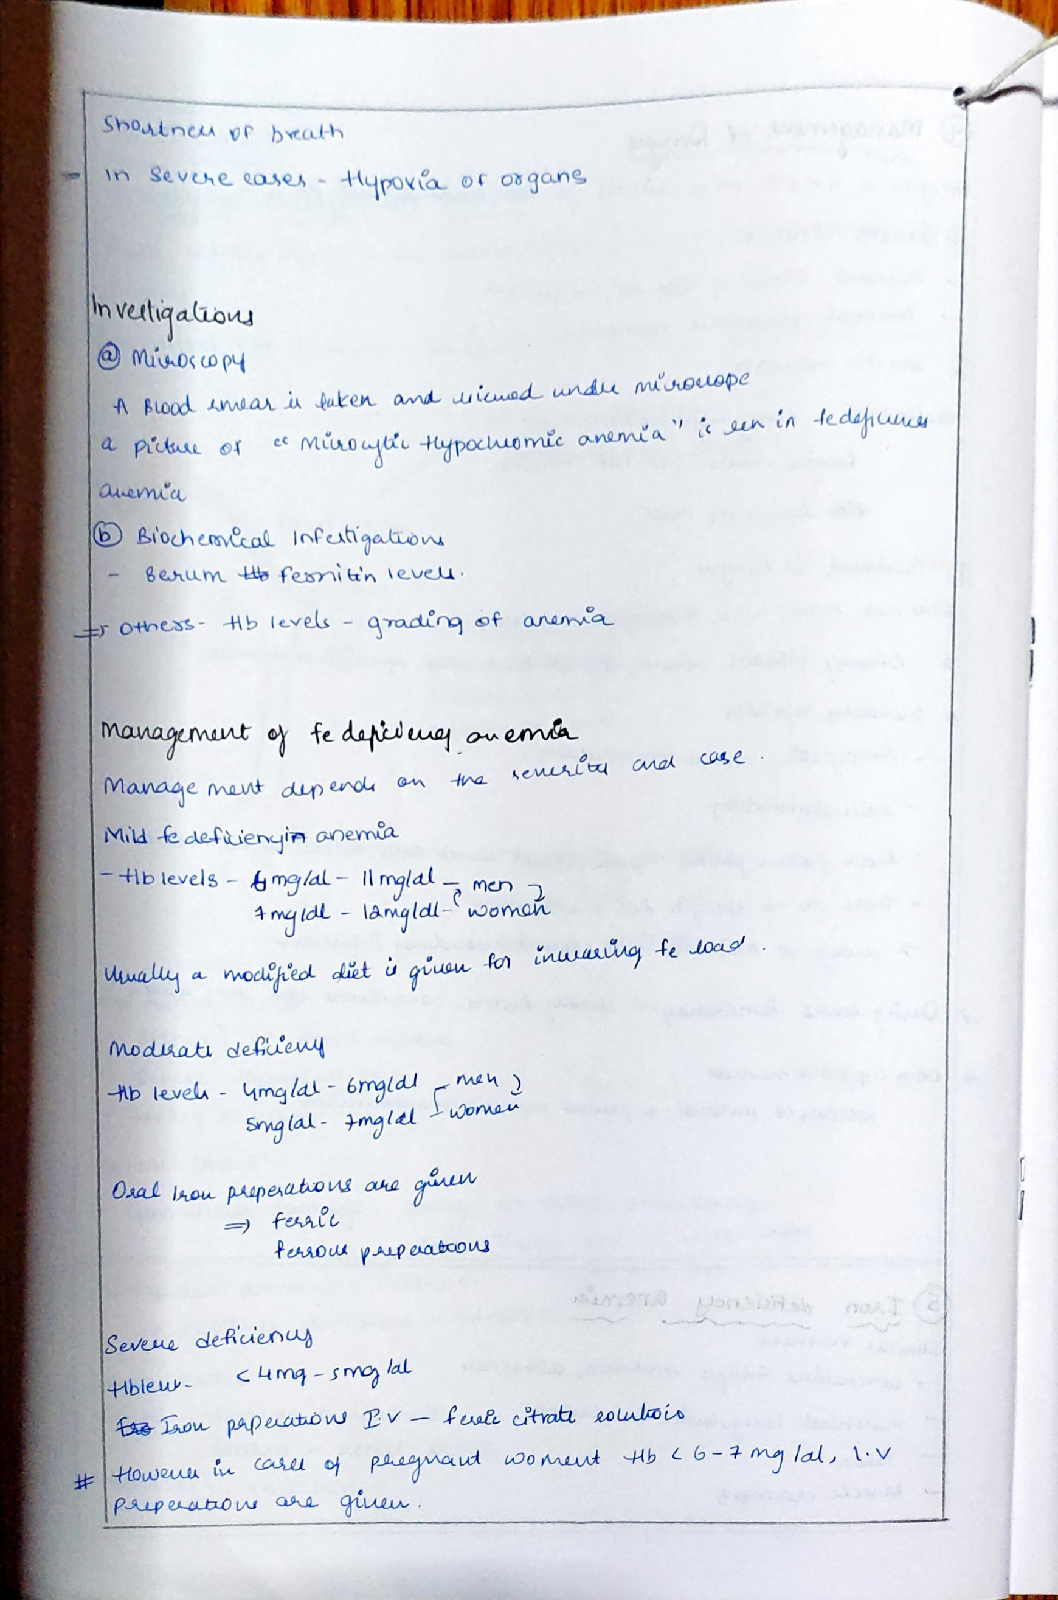 Shortness of breath
- In Severe cases - Hypoxia of organs
Investigations
ⓐ Microscopy
A Blood smear is taken and viewed under microscope
a picture of "Microcytic Hypochromic anemia" is seen in fe deficiency
anemia
ⓑ Biochemical Infestigations
- Serum Hb ferritin levels.
⇒ Others - Hb levels - grading of anemia
Management of fe deficiency anemia
Management depends on the severity and case.
Mild fe deficiency in anemia
- Hb levels - 6mg/dl - 11mg/dl - men
7mg/dl - 12mg/dl - women
Usually a modified diet is given for increasing fe load.
Moderate deficieny
Hb levels - 4mg/dl - 6mg/dl - men
5mg/dl - 7mg/dl - women
Oral Iron preperations are given
⇒ ferric
ferrous preperations
Severe deficiency
Hb level - < 4mg - 5mg/dl
Iron prperations I.V - ferric citrate solutions
# However in cases of pregnant woment Hb < 6-7 mg/dl, I.V
preperations are given.